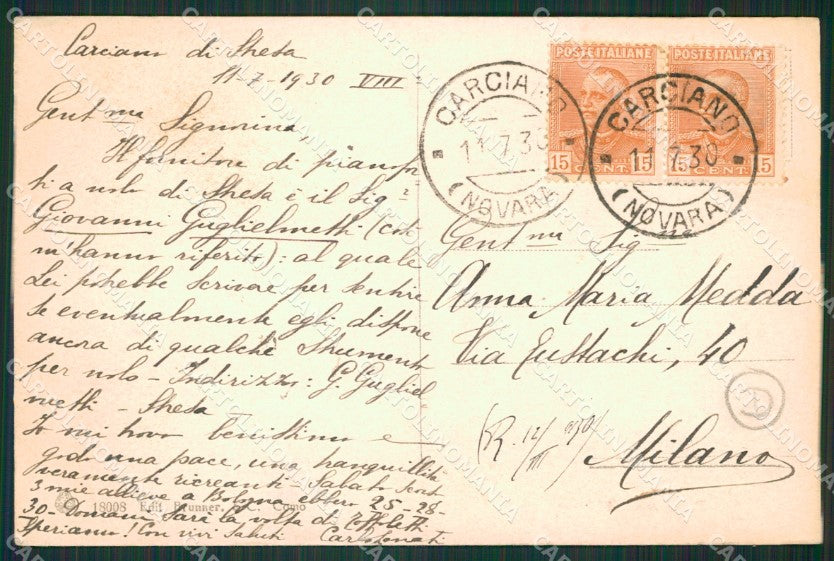 Carciano di Stresa
11-7-1930 VIII
Gent.ma Signorina,
Il fornitore di pianofor
ti a nolo di Stresa è il Sig.
Giovanni Guglielmetti (così
m'hanno riferito): al quale
Lei potrebbe scrivere per sentire
se eventualmente egli dispone
ancora di qualche strumento
per nolo - Indirizzo: G. Gugliel
metti - Stresa -
Io mi trovo benissimo e
godo una pace, una tranquillità
veramente ricreanti. Sabato scorso
3 mie allieve a Bologna ebbero 25-28-
30- Domani sarà la volta di
Speriamo! Con vivi saluti
18008 Edit Brunner, & C. Como
POSTE ITALIANE
15 CENT. 15
POSTE ITALIANE
15 CENT. 15
CARCIANO
11.7.30
(NOVARA)
CARCIANO
11.7.30
(NOVARA)
Gent.ma Sig.
Anna Maria Medda
Via Eustachi, 40
(R. 12/VII 930)
Milano
CARTOLINOMANIA